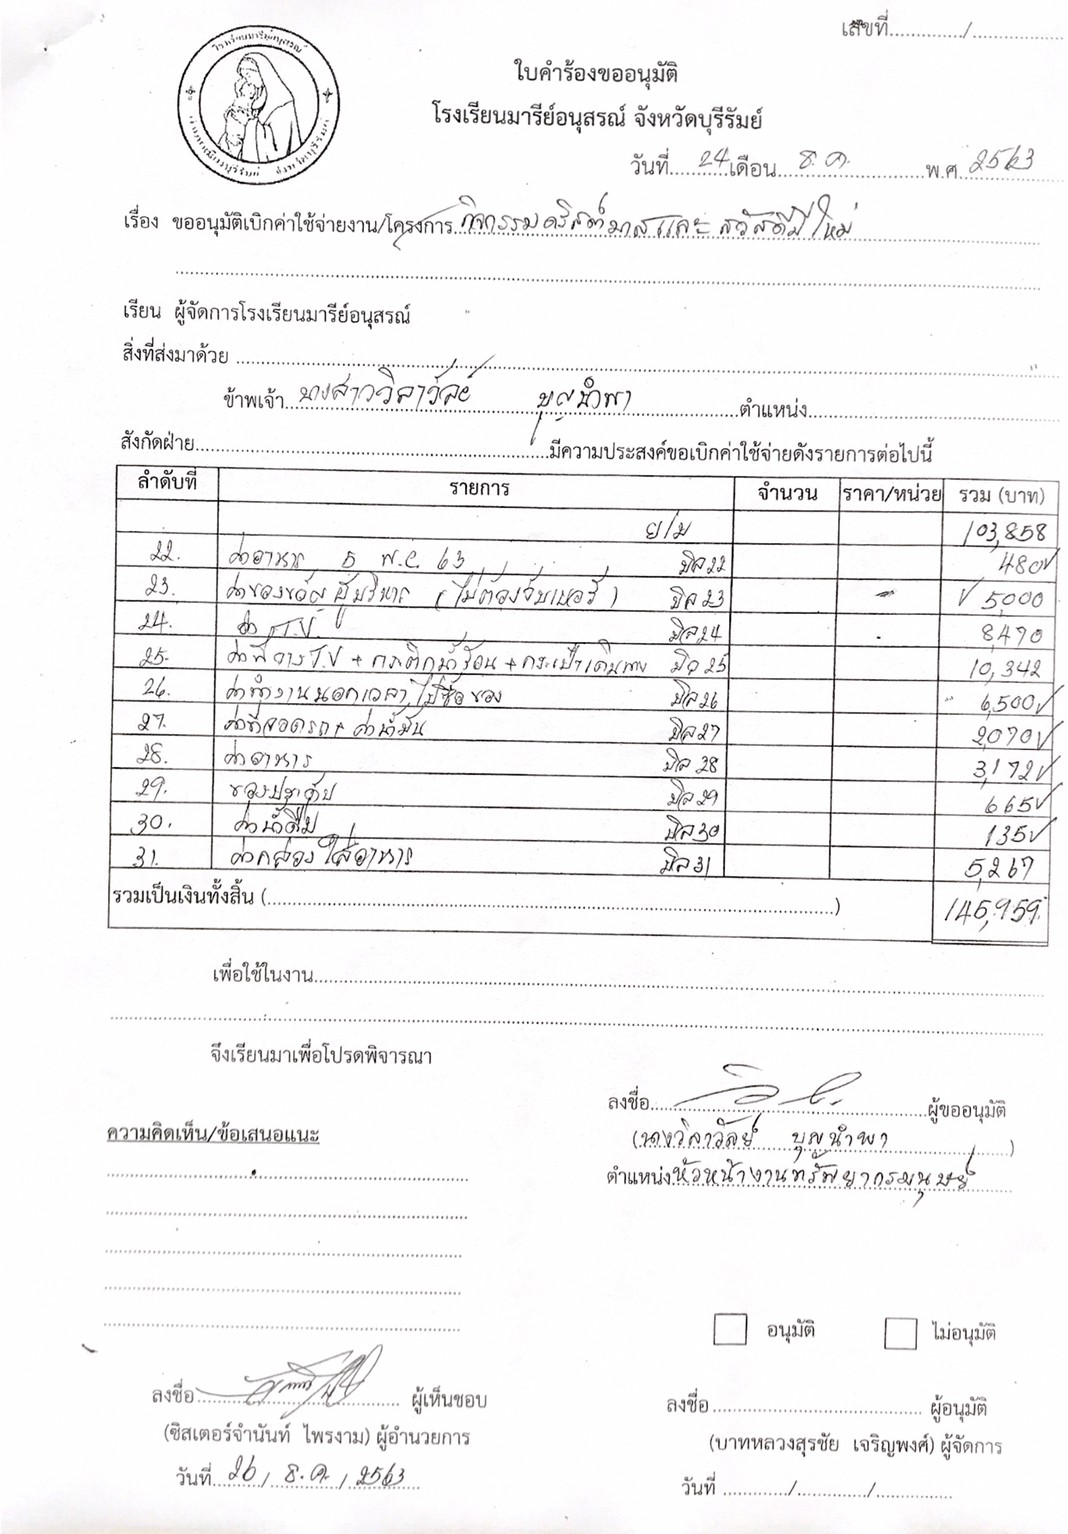 เลขที่............./................
โรงเรียนมารีย์อนุสรณ์
ใบคำร้องขออนุมัติ
โรงเรียนมารีย์อนุสรณ์ จังหวัดบุรีรัมย์
วันที่ 24 เดือน ธ.ค. พ.ศ. 2563
เรื่อง ขออนุมัติเบิกค่าใช้จ่ายงาน/โครงการ กิจกรรมคริสต์มาสและสวัสดีปีใหม่
เรียน ผู้จัดการโรงเรียนมารีย์อนุสรณ์
สิ่งที่ส่งมาด้วย
ข้าพเจ้า นางสาววิลาวัลย์ บุญนำพา ตำแหน่ง
สังกัดฝ่าย มีความประสงค์ขอเบิกค่าใช้จ่ายดังรายการต่อไปนี้
ลำดับที่ รายการ จำนวน ราคา/หน่วย รวม (บาท)
ย/ม 103,858
22. ค่าอาหาร 5 พ.ย. 63 บิล 22 480
23. ค่าของขวัญผู้บริหาร (ไม่ต้องจับเบอร์) บิล 23 5,000
24. ค่า T.V. บิล 24 8,470
25. T.V + กระติกน้ำร้อน + กระเป๋าเดินทาง บิล 25 10,342
26. ค่าทำงานนอกเวลา ไปซื้อของ บิล 26 6,500
27. ค่าที่จอดรถ + ค่าน้ำมัน บิล 27 2,070
28. ค่าอาหาร บิล 28 3,172
29. บิล 29 665
30. ค่าน้ำดื่ม บิล 30 135
31. ค่ากล่องใส่อาหาร บิล 31 5,267
รวมเป็นเงินทั้งสิ้น (...........................) 145,959
เพื่อใช้ในงาน
จึงเรียนมาเพื่อโปรดพิจารณา
ลงชื่อ ผู้ขออนุมัติ
(นางวิลาวัลย์ บุญนำพา)
ตำแหน่ง หัวหน้างานทรัพยากรมนุษย์
ความคิดเห็น/ข้อเสนอแนะ
อนุมัติ ไม่อนุมัติ
ลงชื่อ ผู้เห็นชอบ
(ซิสเตอร์จำนันท์ ไพรงาม) ผู้อำนวยการ
วันที่ 26 / ธ.ค. / 2563
ลงชื่อ ผู้อนุมัติ
(บาทหลวงสุรชัย เจริญพงศ์) ผู้จัดการ
วันที่ ............/............/............